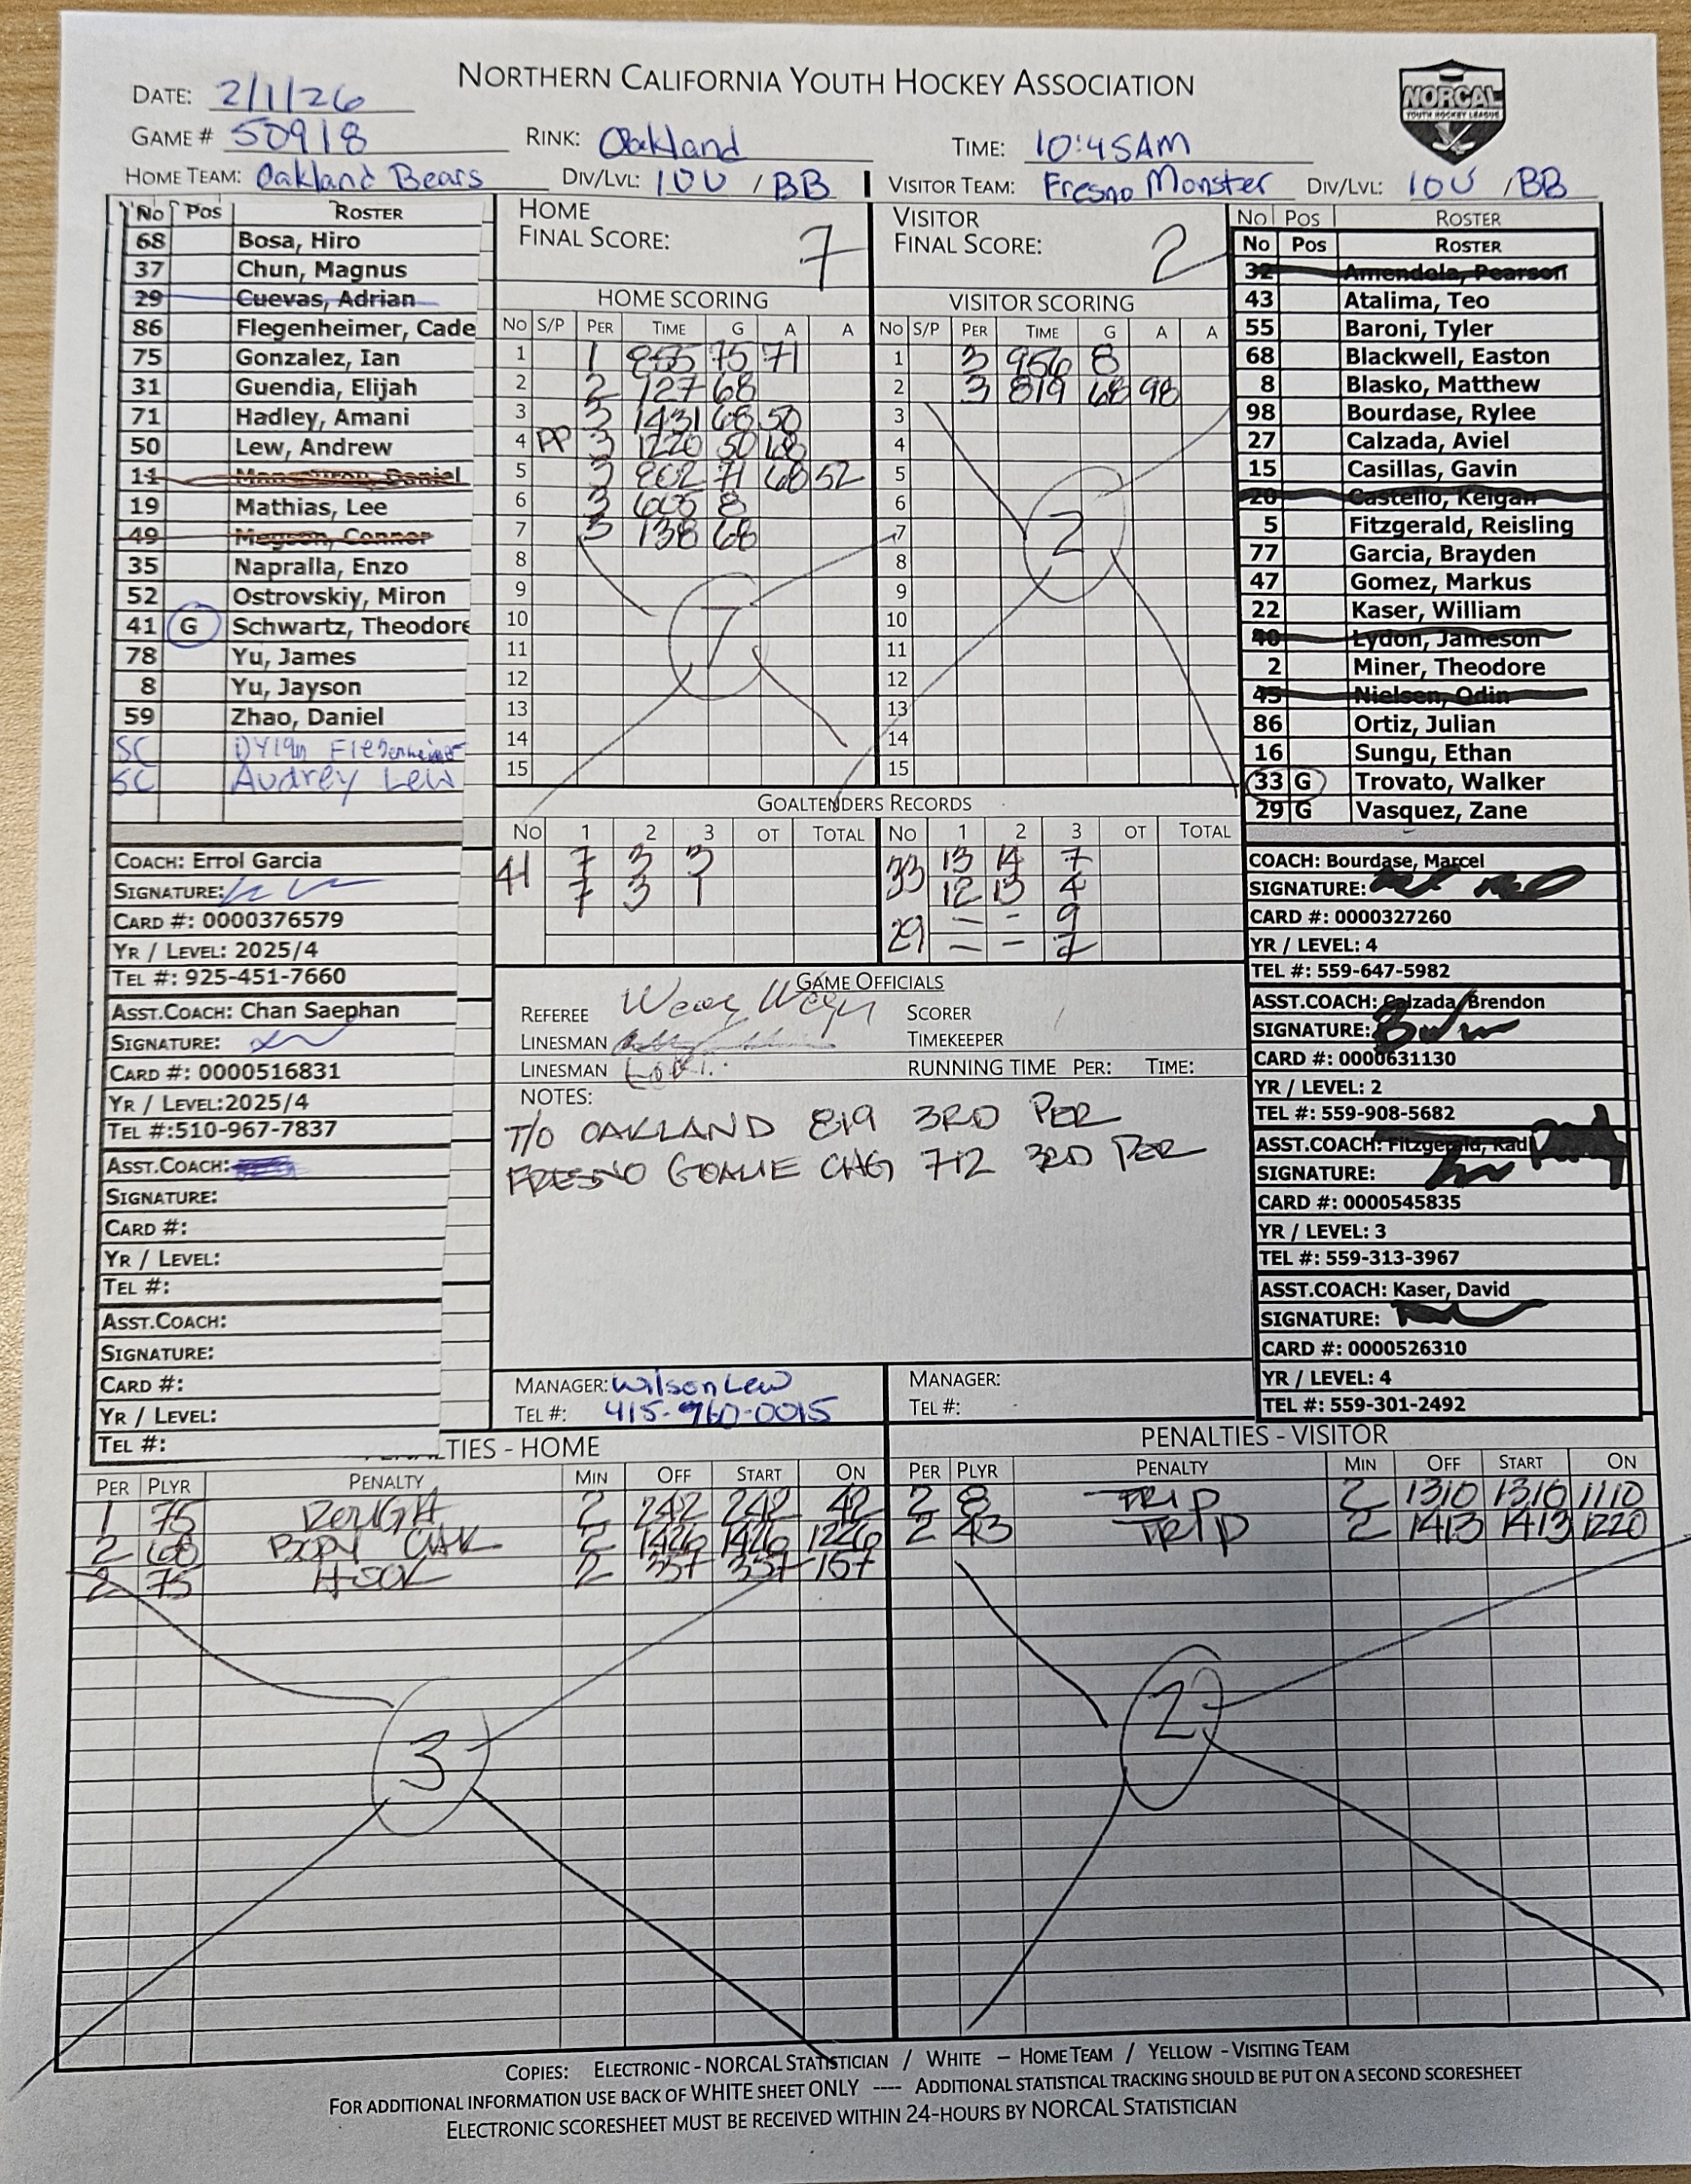 NORTHERN CALIFORNIA YOUTH HOCKEY ASSOCIATION
NORCAL
YOUTH HOCKEY LEAGUE
DATE: 2/1/26
GAME # 50918 RINK: Oakland TIME: 10:45AM
HOME TEAM: Oakland Bears DIV/LVL: 10U / BB VISITOR TEAM: Fresno Monster DIV/LVL: 10U / BB
No Pos ROSTER
68 Bosa, Hiro
37 Chun, Magnus
29 Cuevas, Adrian
86 Flegenheimer, Cade
75 Gonzalez, Ian
31 Guendia, Elijah
71 Hadley, Amani
50 Lew, Andrew
11 Daniel
19 Mathias, Lee
49 Megson, Connor
35 Napralla, Enzo
52 Ostrovskiy, Miron
41 G Schwartz, Theodore
78 Yu, James
8 Yu, Jayson
59 Zhao, Daniel
SC Dylan Flegenheimer
SC Audrey Lew
COACH: Errol Garcia
SIGNATURE:
CARD #: 0000376579
YR / LEVEL: 2025/4
TEL #: 925-451-7660
ASST.COACH: Chan Saephan
SIGNATURE:
CARD #: 0000516831
YR / LEVEL:2025/4
TEL #:510-967-7837
ASST.COACH:
SIGNATURE:
CARD #:
YR / LEVEL:
TEL #:
ASST.COACH:
SIGNATURE:
CARD #:
YR / LEVEL:
TEL #:
HOME
FINAL SCORE: 7
VISITOR
FINAL SCORE: 2
HOME SCORING
No S/P PER TIME G A A
1 1 855 75 71
2 2 127 68
3 3 1431 68 50
4 PP 3 1220 50 68
5 3 802 71 68 52
6 3 605 8
7 3 138 68
8
9
10
11
12
13
14
15
7
VISITOR SCORING
No S/P PER TIME G A A
1 3 956 8
2 3 819 68 98
3
4
5
6
7
8
9
10
11
12
13
14
15
2
GOALTENDERS RECORDS
No 1 2 3 OT TOTAL No 1 2 3 OT TOTAL
41 7 3 3 33 13 14 7
7 3 1 12 13 4
29 - - 9
- - 7
GAME OFFICIALS
REFEREE SCORER
LINESMAN TIMEKEEPER
LINESMAN RUNNING TIME PER: TIME:
NOTES:
T/O OAKLAND 819 3RD PER
FRESNO GOALIE CHG 712 3RD PER
MANAGER: Wilson Lew
TEL #: 415-960-0015
MANAGER:
TEL #:
No Pos ROSTER
No Pos ROSTER
32 Amendola, Pearson
43 Atalima, Teo
55 Baroni, Tyler
68 Blackwell, Easton
8 Blasko, Matthew
98 Bourdase, Rylee
27 Calzada, Aviel
15 Casillas, Gavin
20 Castello, Keigan
5 Fitzgerald, Reisling
77 Garcia, Brayden
47 Gomez, Markus
22 Kaser, William
40 Lydon, Jameson
2 Miner, Theodore
45 Nielsen, Odin
86 Ortiz, Julian
16 Sungu, Ethan
33 G Trovato, Walker
29 G Vasquez, Zane
COACH: Bourdase, Marcel
SIGNATURE:
CARD #: 0000327260
YR / LEVEL: 4
TEL #: 559-647-5982
ASST.COACH: Calzada, Brendon
SIGNATURE:
CARD #: 0000631130
YR / LEVEL: 2
TEL #: 559-908-5682
ASST.COACH: Fitzgerald, Kadi
SIGNATURE:
CARD #: 0000545835
YR / LEVEL: 3
TEL #: 559-313-3967
ASST.COACH: Kaser, David
SIGNATURE:
CARD #: 0000526310
YR / LEVEL: 4
TEL #: 559-301-2492
TIES - HOME
PER PLYR PENALTY MIN OFF START ON
1 75 ROUGH 2 242 242 42
2 68 BODY CHK 2 1426 1426 1226
2 75 HOOK 2 357 357 157
3
PENALTIES - VISITOR
PER PLYR PENALTY MIN OFF START ON
2 8 TRIP 2 1310 1310 1110
2 43 TRIP 2 1413 1413 1220
2
COPIES: ELECTRONIC - NORCAL STATISTICIAN / WHITE – HOME TEAM / YELLOW - VISITING TEAM
FOR ADDITIONAL INFORMATION USE BACK OF WHITE SHEET ONLY ---- ADDITIONAL STATISTICAL TRACKING SHOULD BE PUT ON A SECOND SCORESHEET
ELECTRONIC SCORESHEET MUST BE RECEIVED WITHIN 24-HOURS BY NORCAL STATISTICIAN